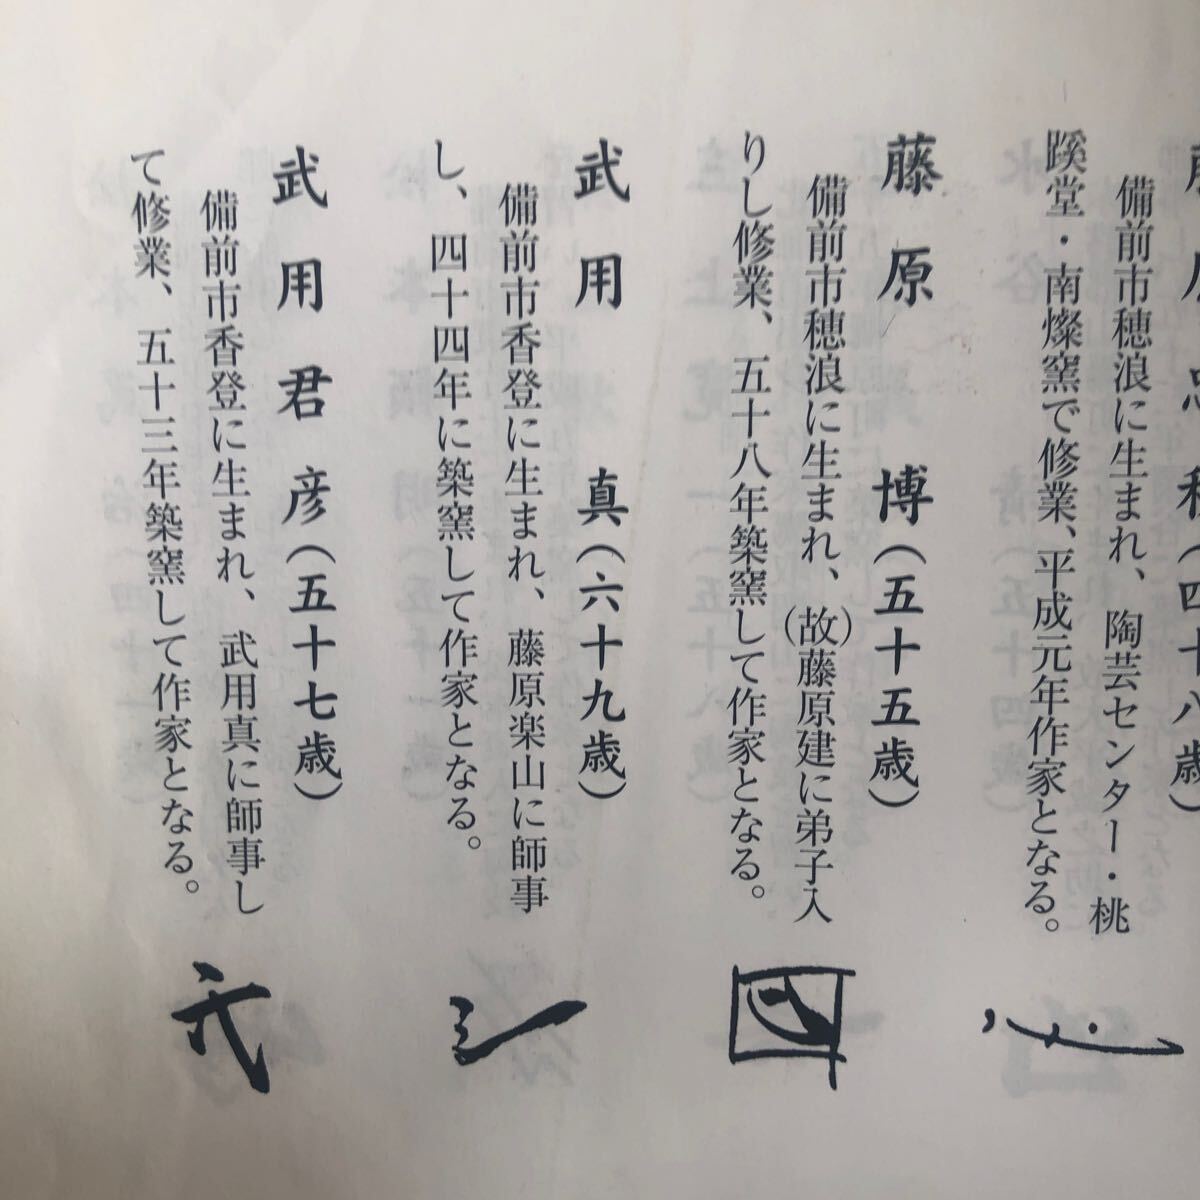 備前市穂浪に生まれ、陶芸センター・桃
蹊堂・南燦窯で修業、平成元年作家となる。
藤原　博（五十五歳）
備前市穂浪に生まれ、(故)藤原建に弟子入
りし修業、五十八年築窯して作家となる。
武用　真（六十九歳）
備前市香登に生まれ、藤原楽山に師事
し、四十四年に築窯して作家となる。
武用君彦（五十七歳）
備前市香登に生まれ、武用真に師事し
て修業、五十三年築窯して作家となる。